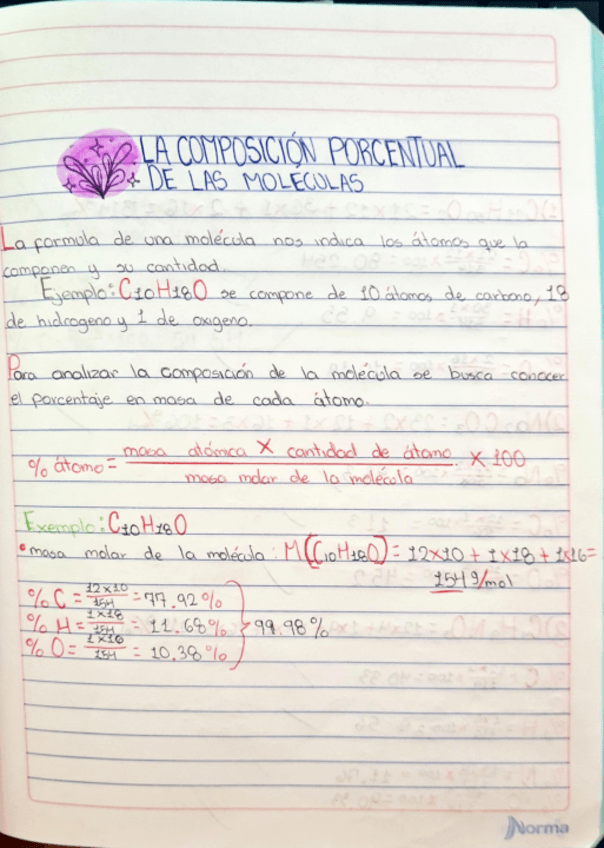 LA COMPOSICIÓN PORCENTUAL
DE LAS MOLÉCULAS
La formula de una molécula nos indica los átomos que la
componen y su cantidad.
Ejemplo: C10H18O se compone de 10 átomos de carbono, 18
de hidrogeno y 1 de oxigeno.
Para analizar la composición de la molécula se busca conocer
el porcentaje en masa de cada átomo.
% átomo = masa atómica X cantidad de átomo / masa molar de la molécula X 100
Exemplo: C10H18O
• masa molar de la molécula: M(C10H18O) = 12x10 + 1x18 + 1x16 =
154 g/mol
% C = 12x10/154 = 77.92%
% H = 1x18/154 = 11.68% } 99.98%
% O = 1x16/154 = 10.38%
Norma